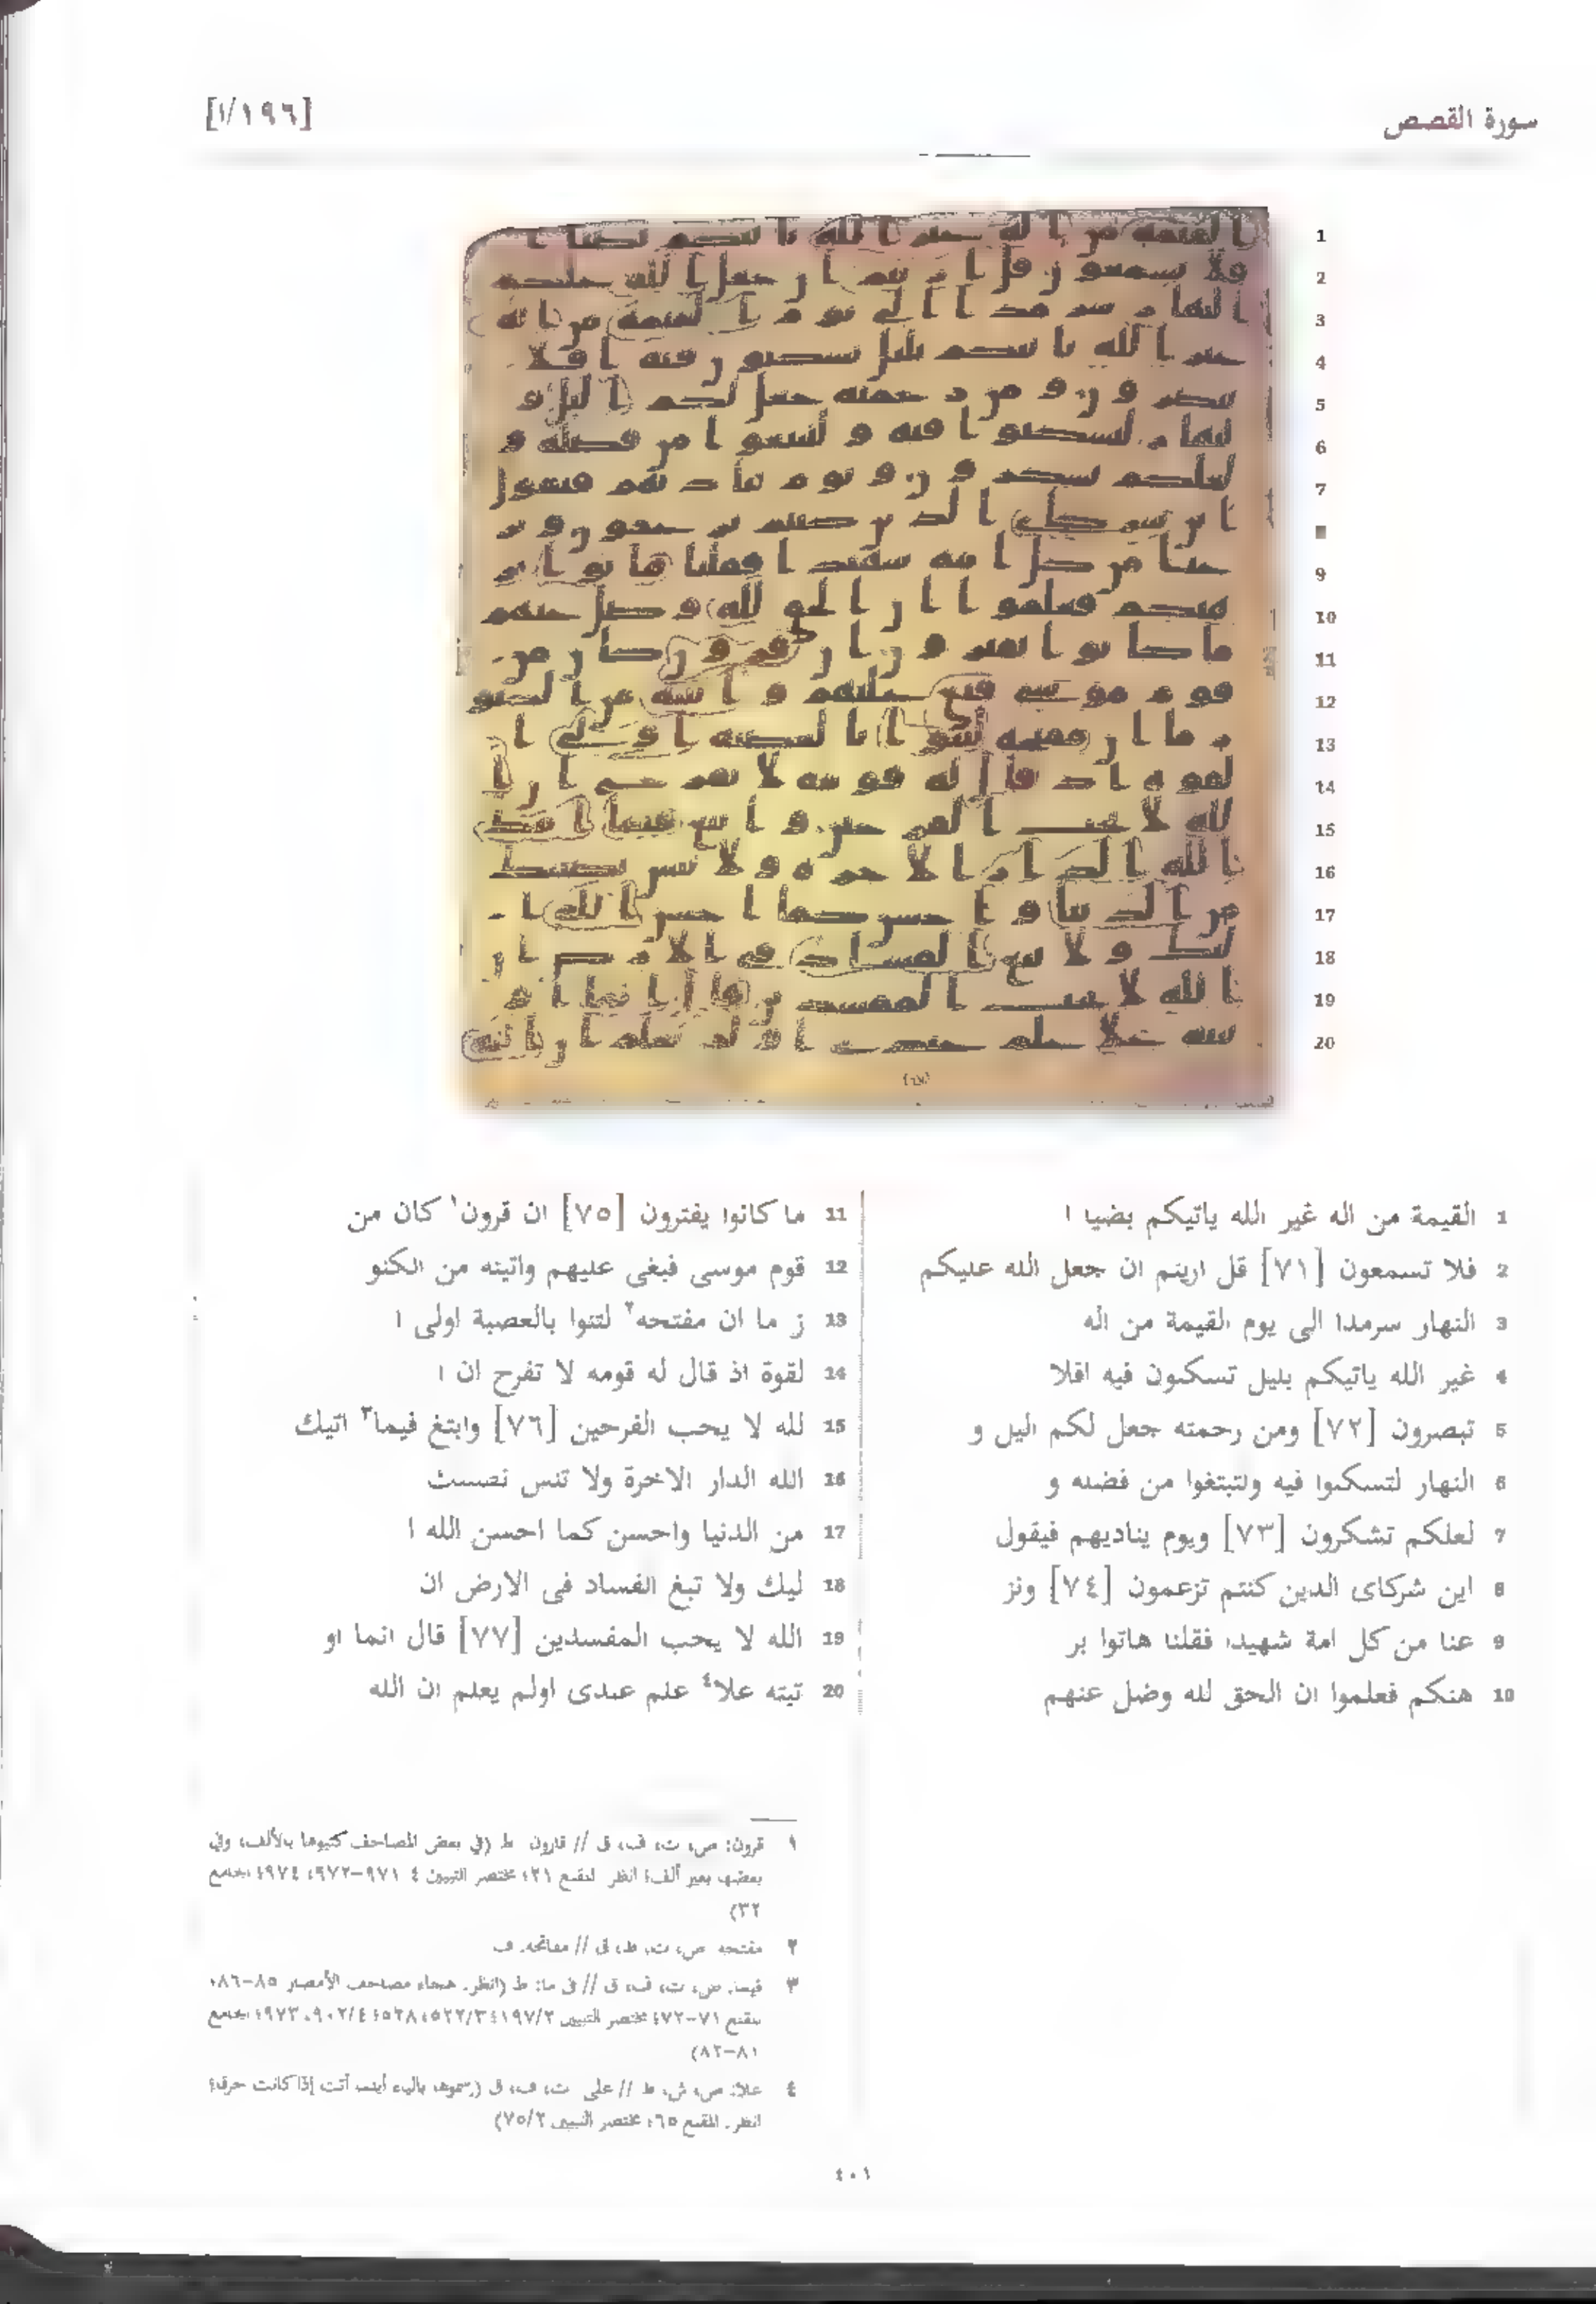 سورة القصص
[١٩٦/١]
1 القيمة من اله غير الله ياتيكم بضيا ا
2 فلا تسمعون [٧١] قل اريتم ان جعل الله عليكم
3 النهار سرمدا الى يوم القيمة من اله
4 غير الله ياتيكم بليل تسكنون فيه افلا
5 تبصرون [٧٢] ومن رحمته جعل لكم اليل و
6 النهار لتسكنوا فيه ولتبتغوا من فضله و
7 لعلكم تشكرون [٧٣] ويوم يناديهم فيقول
8 اين شركاى الذين كنتم تزعمون [٧٤] ونز
9 عنا من كل امة شهيدا فقلنا هاتوا بر
10 هنكم فعلموا ان الحق لله وضل عنهم
11 ما كانوا يفترون [٧٥] ان قرون١ كان من
12 قوم موسى فبغى عليهم واتينه من الكنو
13 ز ما ان مفتحه٢ لتنوا بالعصبة اولى ا
14 لقوة اذ قال له قومه لا تفرح ان ا
15 لله لا يحب الفرحين [٧٦] وابتغ فيما٣ اتيك
16 الله الدار الاخرة ولا تنس
17 من الدنيا واحسن كما احسن الله ا
18 ليك ولا تبغ الفساد فى الارض ان
19 الله لا يحب المفسدين [٧٧] قال انما او
20 تيته علا٤ علم عندى اولم يعلم ان الله
١ قرون: ص، ت، ف، ق // قارون ط (في بعض المصاحف كتبوها بالألف، وفي
بعضها بغير ألف؛ انظر المقنع ٢١؛ مختصر التبيين ٤ ٩٧١-٩٧٢، ٩٧٤؛ الجامع
٣٢)
٢ مفتحه ص، ت، ط، ق // مفاتحه. ف
٣ فيما. ص، ت، ف، ق // فى ما: ط (انظر. هجاء مصاحف الأمصار ٨٥-٨٦؛
المقنع ٧١-٧٢؛ مختصر التبيين ١٩٧/٢؛ ٥٢٢/٣، ٥٢٨؛ ٩٠٢/٤، ٩٧٣؛ الجامع
٨١-٨٢)
٤ علا: ص، ش، ط // على ت، ف، ق (رسموه بالياء أينما أتت إذا كانت حرفا؛
انظر. المقنع ٦٥؛ مختصر التبيين ٧٥/٢)
٤٠١